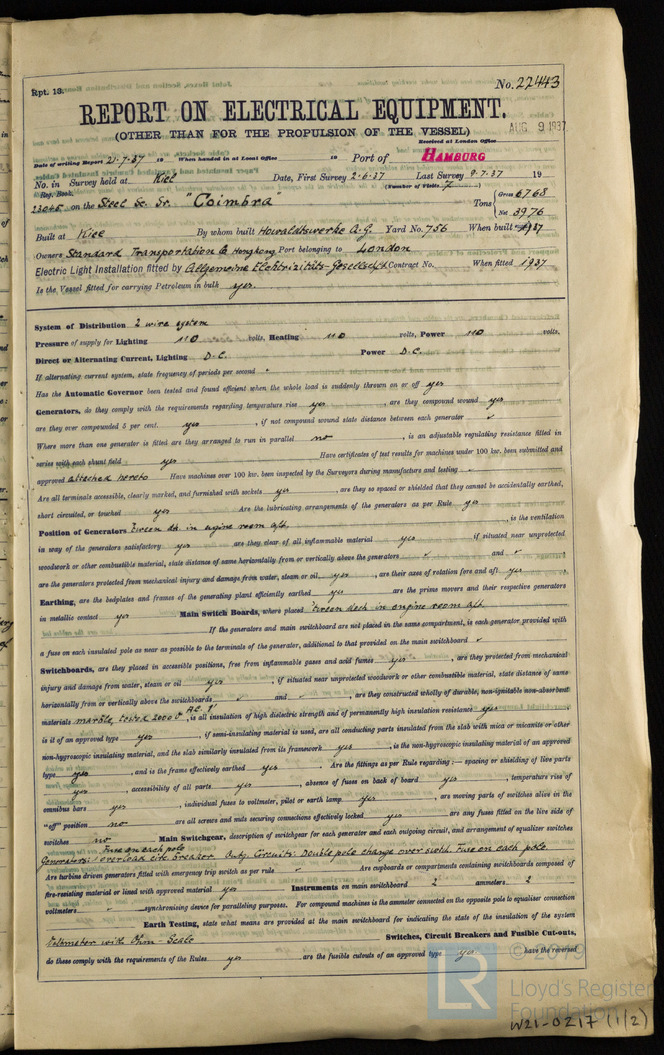 Rpt. 13.
No. 22443
REPORT ON ELECTRICAL EQUIPMENT.
(OTHER THAN FOR THE PROPULSION OF THE VESSEL)
AUG 9 1937
Received at London Office
Date of writing Report 21.7.37 19 When handed in at Local Office 19 Port of HAMBURG
No. in Survey held at Kiel Date, First Survey 2.6.37 Last Survey 9.7.37 19
Reg. Book. (Number of Visits 7)
23045 on the Steel Sc. Sr. "Coimbra" Tons Gross 6768
Net 3976
Built at Kiel By whom built Howaldtswerke A.G. Yard No. 756 When built 1937
Owners Standard Transportation Co Hongkong Port belonging to London
Electric Light Installation fitted by Allgemeine Elektrizitäts-Gesellschft Contract No. When fitted 1937
Is the Vessel fitted for carrying Petroleum in bulk yes.
System of Distribution 2 wire system
Pressure of supply for Lighting 110 volts, Heating 110 volts, Power 110 volts.
Direct or Alternating Current, Lighting D.C. Power D.C.
If alternating current system, state frequency of periods per second
Has the Automatic Governor been tested and found efficient when the whole load is suddenly thrown on or off yes
Generators, do they comply with the requirements regarding temperature rise yes, are they compound wound yes
are they over compounded 5 per cent. yes, if not compound wound state distance between each generator ✓
Where more than one generator is fitted are they arranged to run in parallel no, is an adjustable regulating resistance fitted in
series with each shunt field yes Have certificates of test results for machines under 100 kw. been submitted and
approved attached hereto Have machines over 100 kw. been inspected by the Surveyors during manufacture and testing
Are all terminals accessible, clearly marked, and furnished with sockets yes, are they so spaced or shielded that they cannot be accidentally earthed,
short circuited, or touched yes Are the lubricating arrangements of the generators as per Rule yes
Position of Generators in engine room aft, is the ventilation
in way of the generators satisfactory yes are they clear of all inflammable material yes if situated near unprotected
woodwork or other combustible material, state distance of same horizontally from or vertically above the generators ✓ and ✓
are the generators protected from mechanical injury and damage from water, steam or oil yes, are their axes of rotation fore and aft yes
Earthing, are the bedplates and frames of the generating plant efficiently earthed yes are the prime movers and their respective generators
in metallic contact yes Main Switch Boards, where placed deck in engine room aft.
If the generators and main switchboard are not placed in the same compartment, is each generator provided with
a fuse on each insulated pole as near as possible to the terminals of the generator, additional to that provided on the main switchboard ✓
Switchboards, are they placed in accessible positions, free from inflammable gases and acid fumes yes, are they protected from mechanical
injury and damage from water, steam or oil yes, if situated near unprotected woodwork or other combustible material, state distance of same
horizontally from or vertically above the switchboards ✓ and ✓, are they constructed wholly of durable, non-ignitable non-absorbent
materials marble, tested 2000 V A.C. 1', is all insulation of high dielectric strength and of permanently high insulation resistance yes
is it of an approved type yes, if semi-insulating material is used, are all conducting parts insulated from the slab with mica or micanite or other
non-hygroscopic insulating material, and the slab similarly insulated from its framework yes, is the non-hygroscopic insulating material of an approved
type yes, and is the frame effectively earthed yes. Are the fittings as per Rule regarding:— spacing or shielding of live parts
yes, accessibility of all parts yes, absence of fuses on back of board yes, temperature rise of
omnibus bars yes, individual fuses to voltmeter, pilot or earth lamp yes, are moving parts of switches alive in the
"off" position no are all screws and nuts securing connections effectively locked yes are any fuses fitted on the live side of
switches no Main Switchgear, description of switchgear for each generator and each outgoing circuit, and arrangement of equalizer switches
Fuse on each pole
Generators: overload circ breaker Outg. Circuits: Double pole change over switch. Fuse on each pole
Are turbine driven generators fitted with emergency trip switch as per rule ✓ Are cupboards or compartments containing switchboards composed of
fire-resisting material or lined with approved material yes Instruments on main switchboard 2 ammeters 2
voltmeters synchronising device for paralleling purposes. For compound machines is the ammeter connected on the opposite pole to equaliser connection
Earth Testing, state what means are provided at the main switchboard for indicating the state of the insulation of the system
Voltmeter with Ohm-Scale Switches, Circuit Breakers and Fusible Cut-outs,
do these comply with the requirements of the Rules yes are the fusible cutouts of an approved type yes have the reversed
© 2019
LR
Lloyd's Register
Foundation
W21-0217 (1/2)